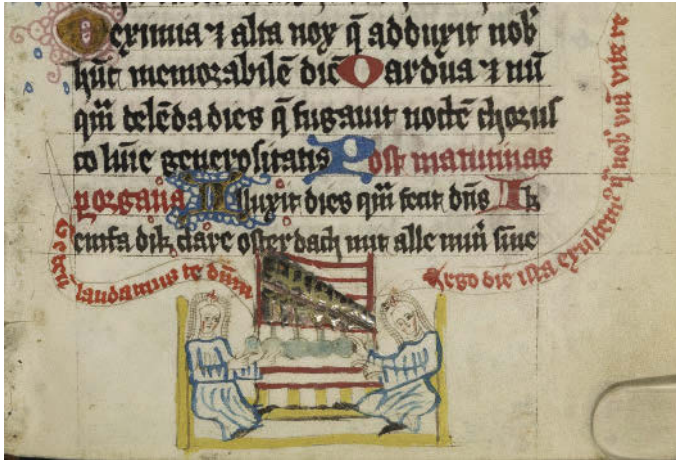 O eximia ⁊ alta nox q̄ adduxit nob'
hūc memorabilē diē O ardua ⁊ nū
qm̄ delēda dies q̄ fugauit noctē chorus
co hūc generositatis Post matutinas
ꝑ organa Illuxit dies qm̄ fecit dn̄s Ik
entfa dik clare osterdach mit alle min̄ sine
Te deū laudamus te dn̄m
Ergo die ista exultemꝰ q̄ nob' viā vite re